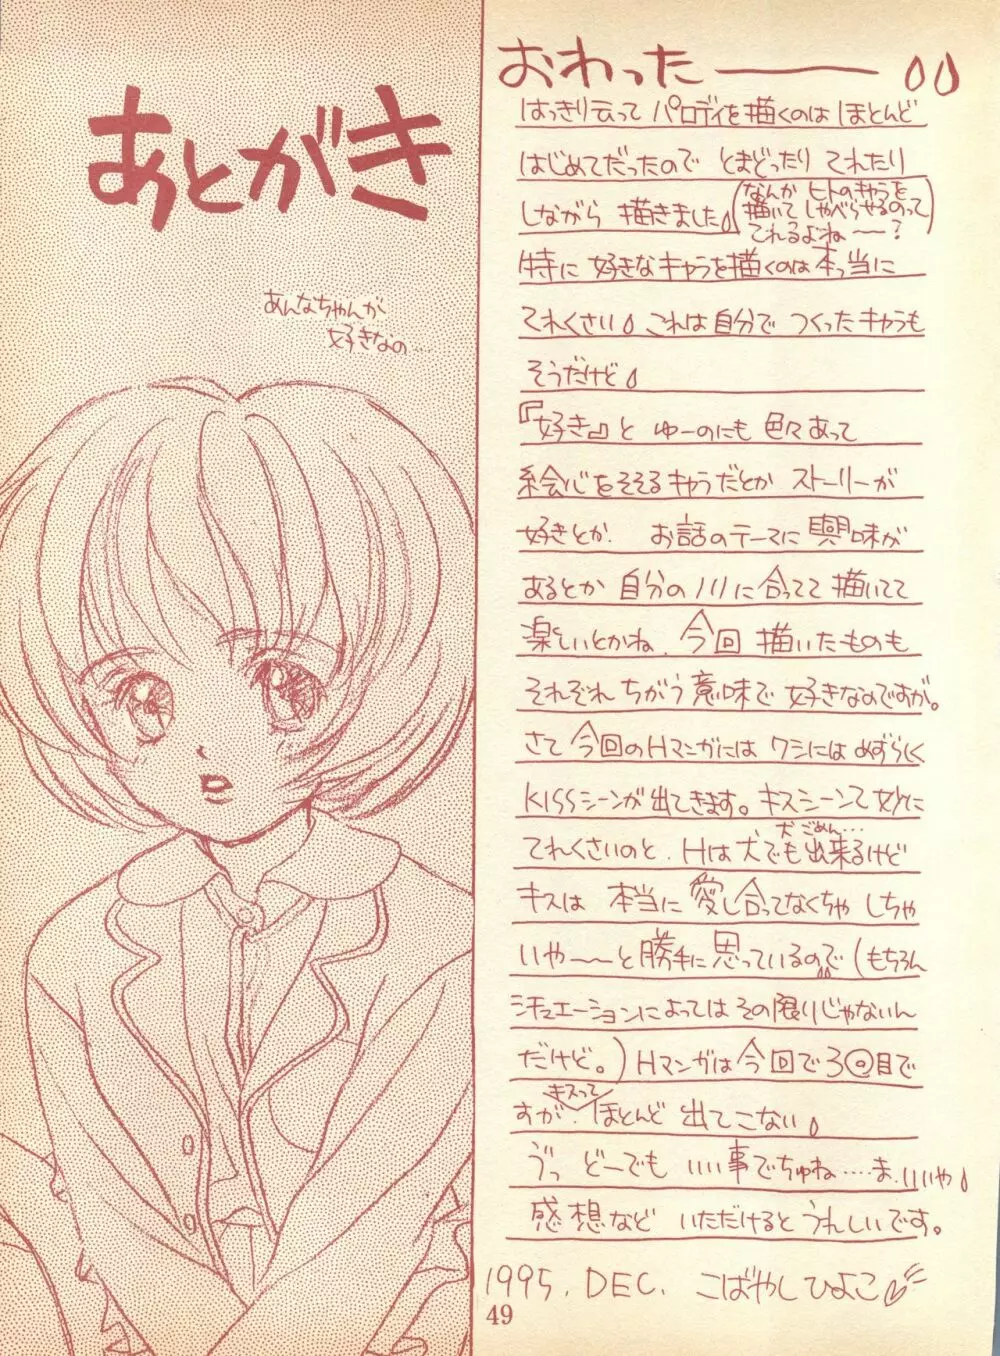 あとがき
あんなちゃんが
好きなの……
おわったーーー
はっきり云って パロディを描くのは ほとんど
はじめてだったので とまどったり てれたり
しながら 描きました
(なんか ヒトのキャラを
描いて しゃべらせるのって
てれるよね〜?)
特に 好きなキャラを描くのは 本っ当に
てれくさい これは自分で つくったキャラも
そうだけど
『好き』と ゆーのにも 色々あって
絵心をそそるキャラだとか ストーリーが
好きとか. お話のテーマに興味が
あるとか 自分のノリに合ってて 描いてて
楽しいとかね. 今回 描いたものも
それぞれ ちがう意味で 好きなのですが。
さて 今回のHマンガには ワシにはめずらしく
KISSシーンが出てきます。キスシーンて妙に
てれくさいのと. Hは犬でも出来るけど
犬ごめん…
キスは 本当に愛し合ってなくちゃ しちゃ
いや〜〜と勝手に思っているので (もちろん
シチュエーションによってはその限りじゃないん
だけど。) Hマンガは今回で3回目で
すが. キスって ほとんど 出てこない
うっ どーでも いい事でちゅね……ま.いいや
感想など いただけると うれしいです。
1995. DEC. こばやしひよこ
49